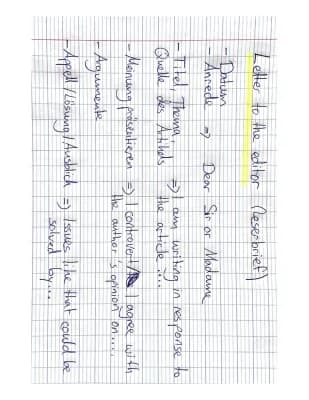 Letter to the editor (Leserbrief)
- Datum
- Anrede => Dear Sir or Madame
- Titel, Thema, => I am writing in response to
Quelle des Artikels the article ....
- Meinung präsentieren => I controvert / I agree with
the author's opinion on ....
- Argumente
- Appell/Lösung/Ausblick => Issues like that could be
solved by ....